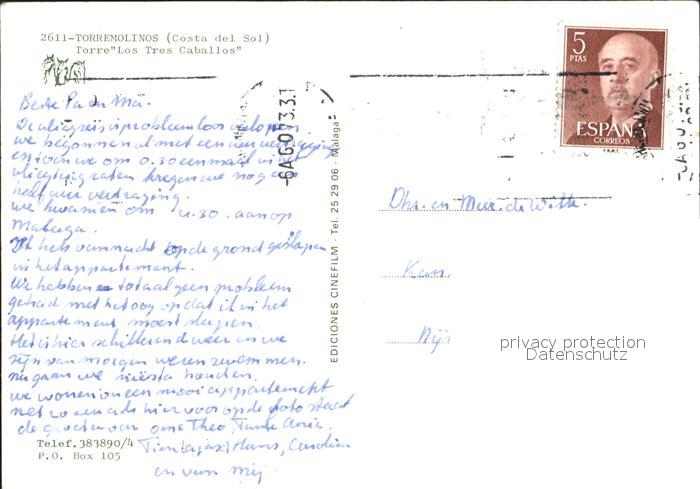 2611-TORREMOLINOS (Costa del Sol)
Torre "Los Tres Caballos"
5
PTAS
ESPAÑA
CORREOS
F.N.M.T.
Beste Pa en Ma.
De vliegreis is probleemloos verlopen.
we begonnen al met een uur vertraging
en toen we om 0.30 eenmaal in het
vliegtuig zaten kregen we nog een
half uur vertraging.
we kwamen om 4.30. aan op
Malaga.
Ik heb vannacht op de grond geslapen
in het appartement.
We hebben totaal geen probleem
gehad met het oog op dat ik in het
appartement moest slapen.
Het is hier schitterend weer en we
zijn van morgen wezen zwemmen.
nu gaan we siësta houden.
we wonen in een mooi appartement
net zo een als hier voor op de foto staat
de groeten van ome Theo, Tante Annie.
Tien Hans, Carolien
en van mij.
Telef. 383890/4
P.O. Box 105
EDICIONES CINEFILM - Tel. 25 29 06 - Malaga
-6AGO73
Dhr. en Mevr. de Witte.
privacy protection
Datenschutz